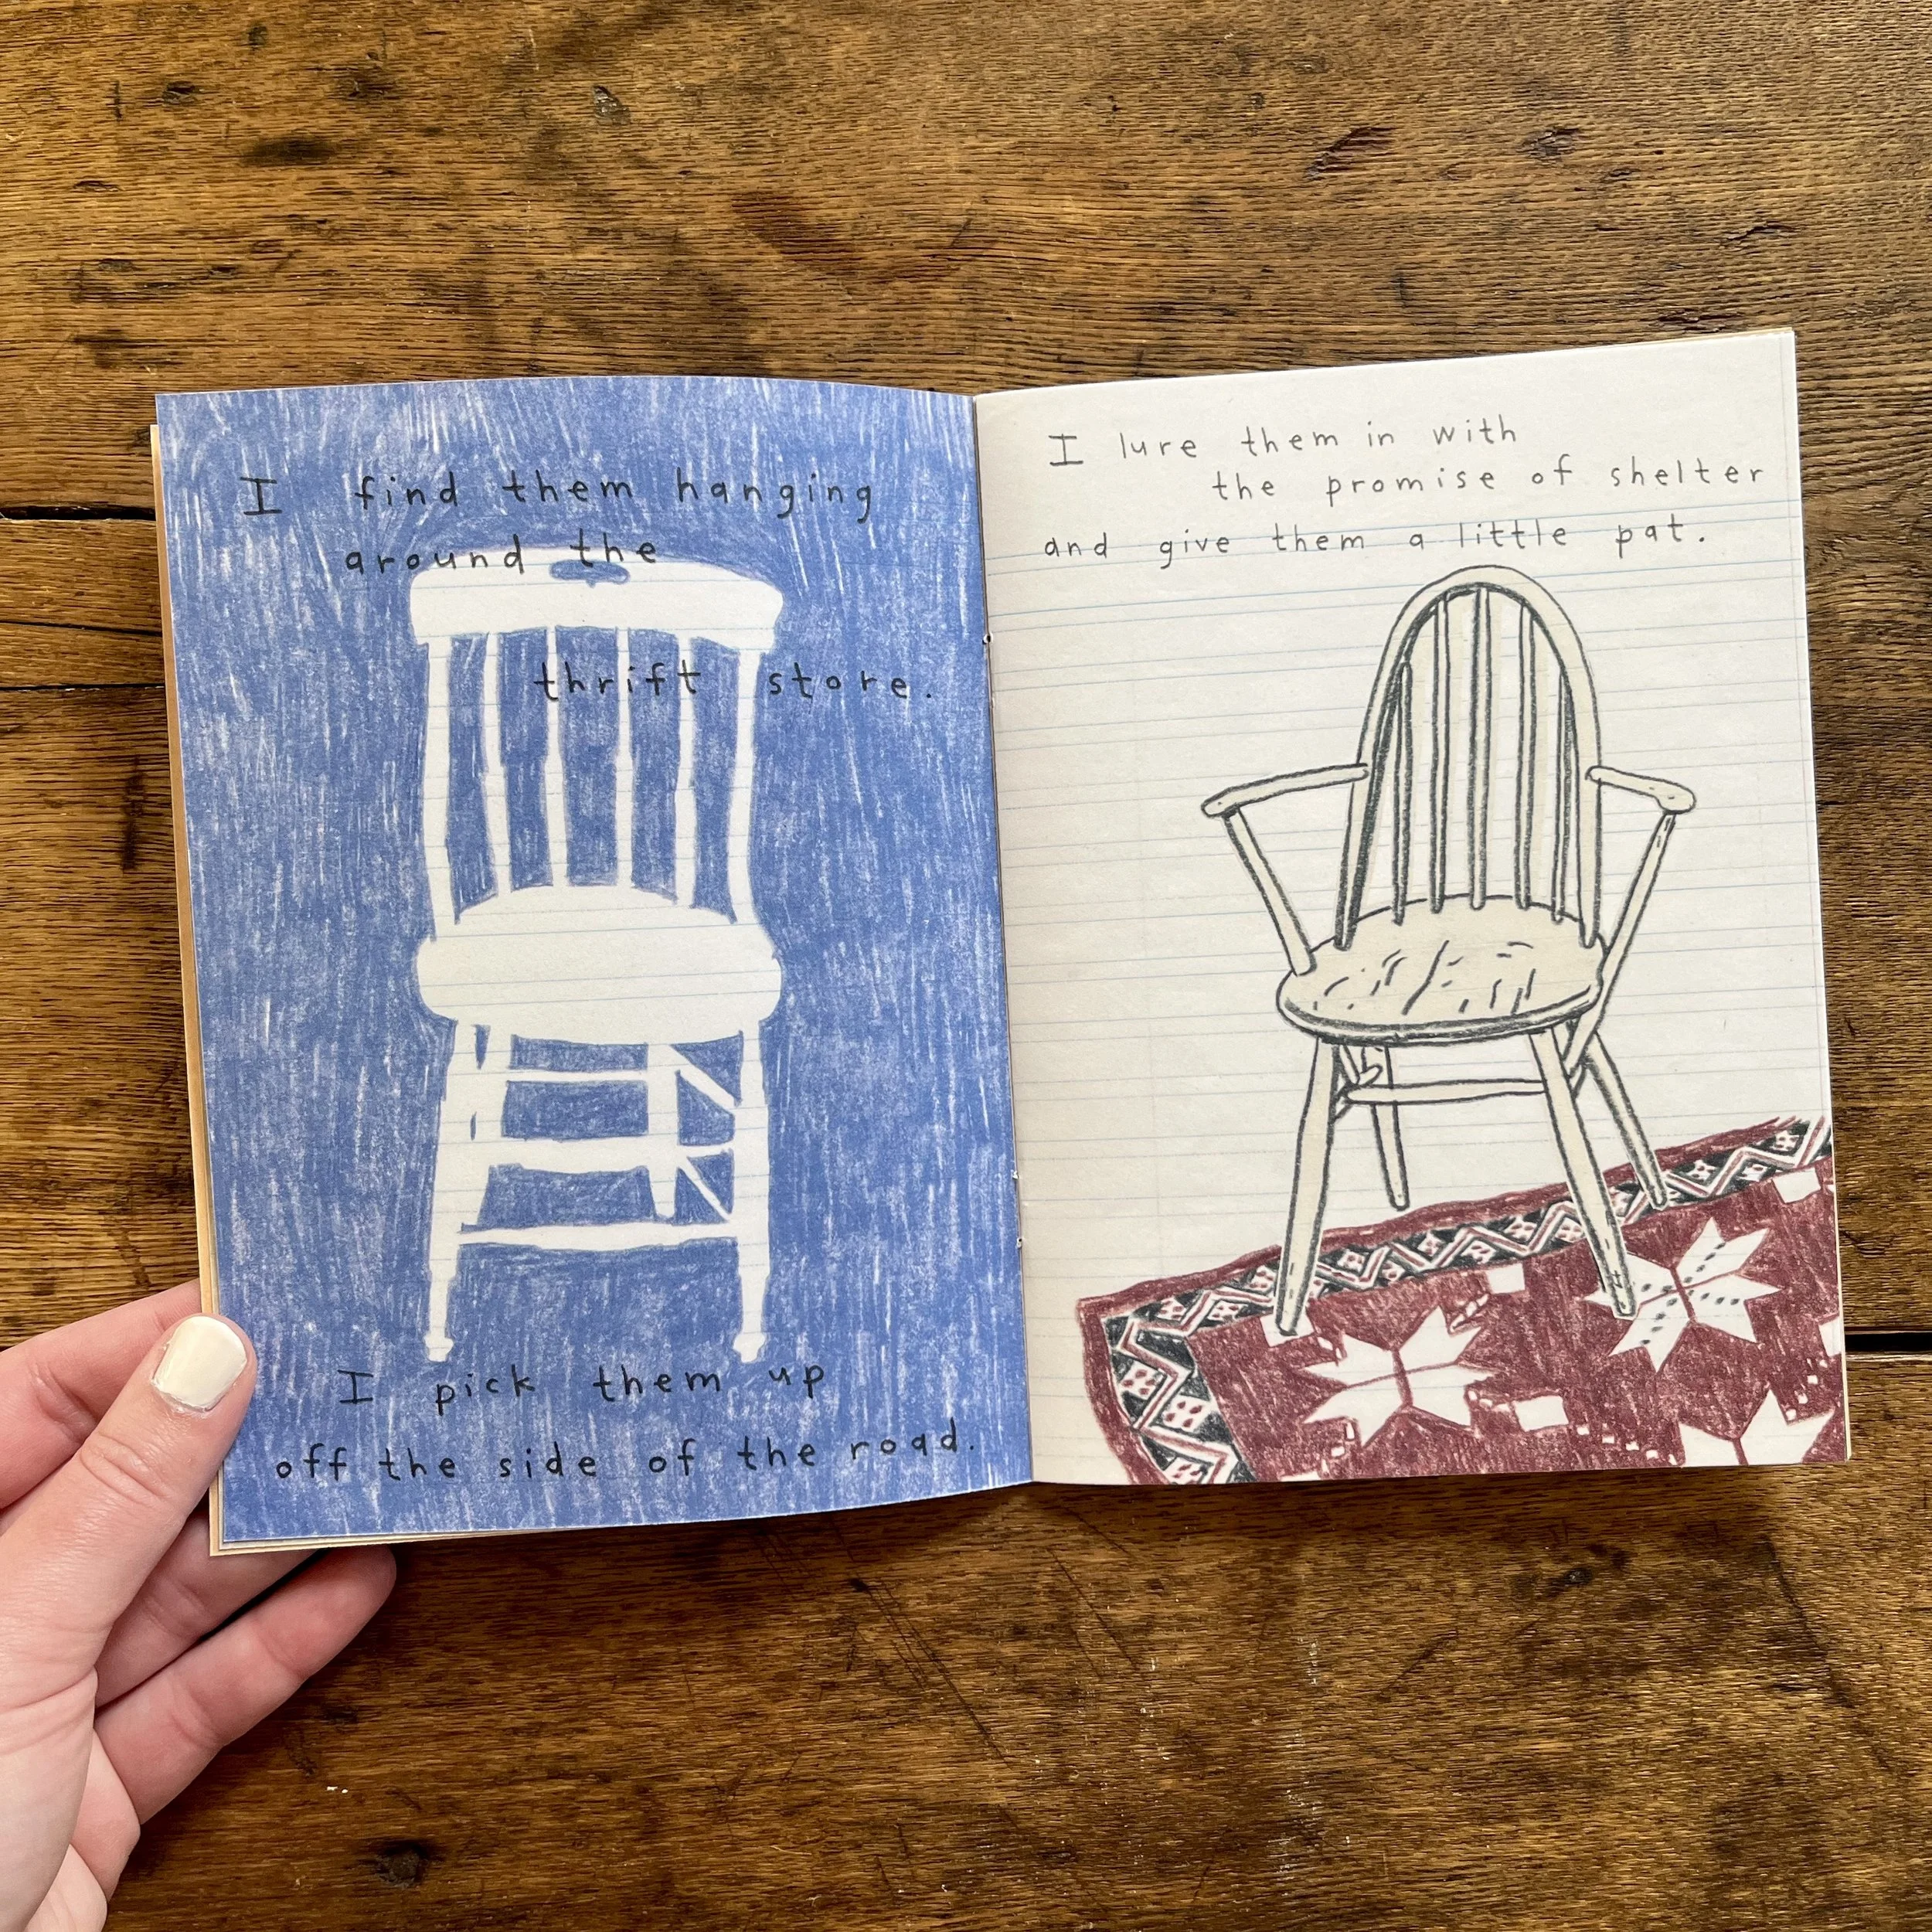 I find them hanging
around the
thrift store.
I pick them up
off the side of the road.
I lure them in with
the promise of shelter
and give them a little pat.